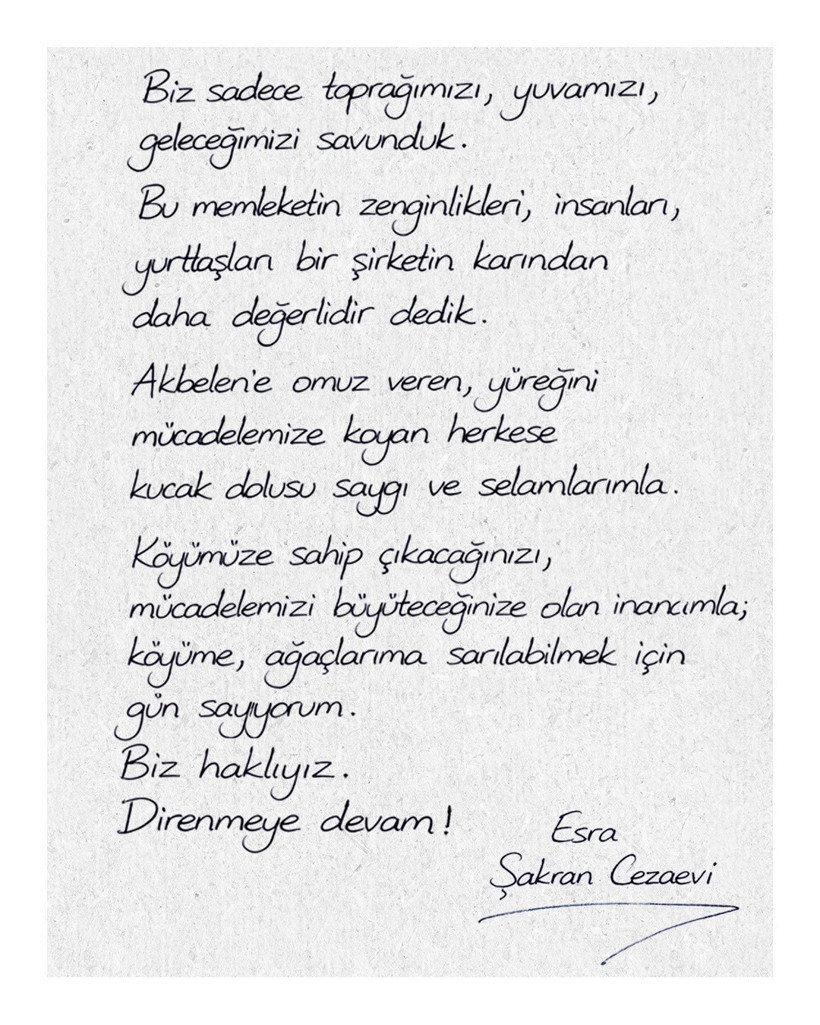 Biz sadece toprağımızı, yuvamızı,
geleceğimizi savunduk.
Bu memleketin zenginlikleri, insanları,
yurttaşları bir şirketin karından
daha değerlidir dedik.
Akbelen'e omuz veren, yüreğini
mücadelemize koyan herkese
kucak dolusu saygı ve selamlarımla.
Köyümüze sahip çıkacağınızı,
mücadelemizi büyüteceğinize olan inancımla;
köyüme, ağaçlarıma sarılabilmek için
gün sayıyorum.
Biz haklıyız.
Direnmeye devam!
Esra
Şakran Cezaevi